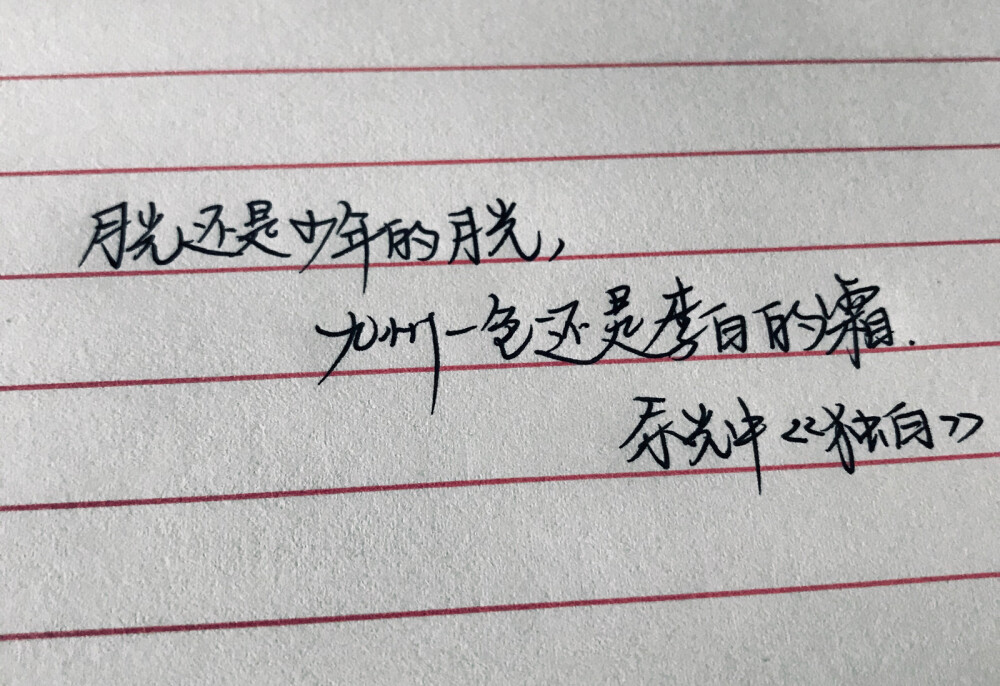 月光还是少年的月光，
九州一色还是李白的霜.
余光中《独白》